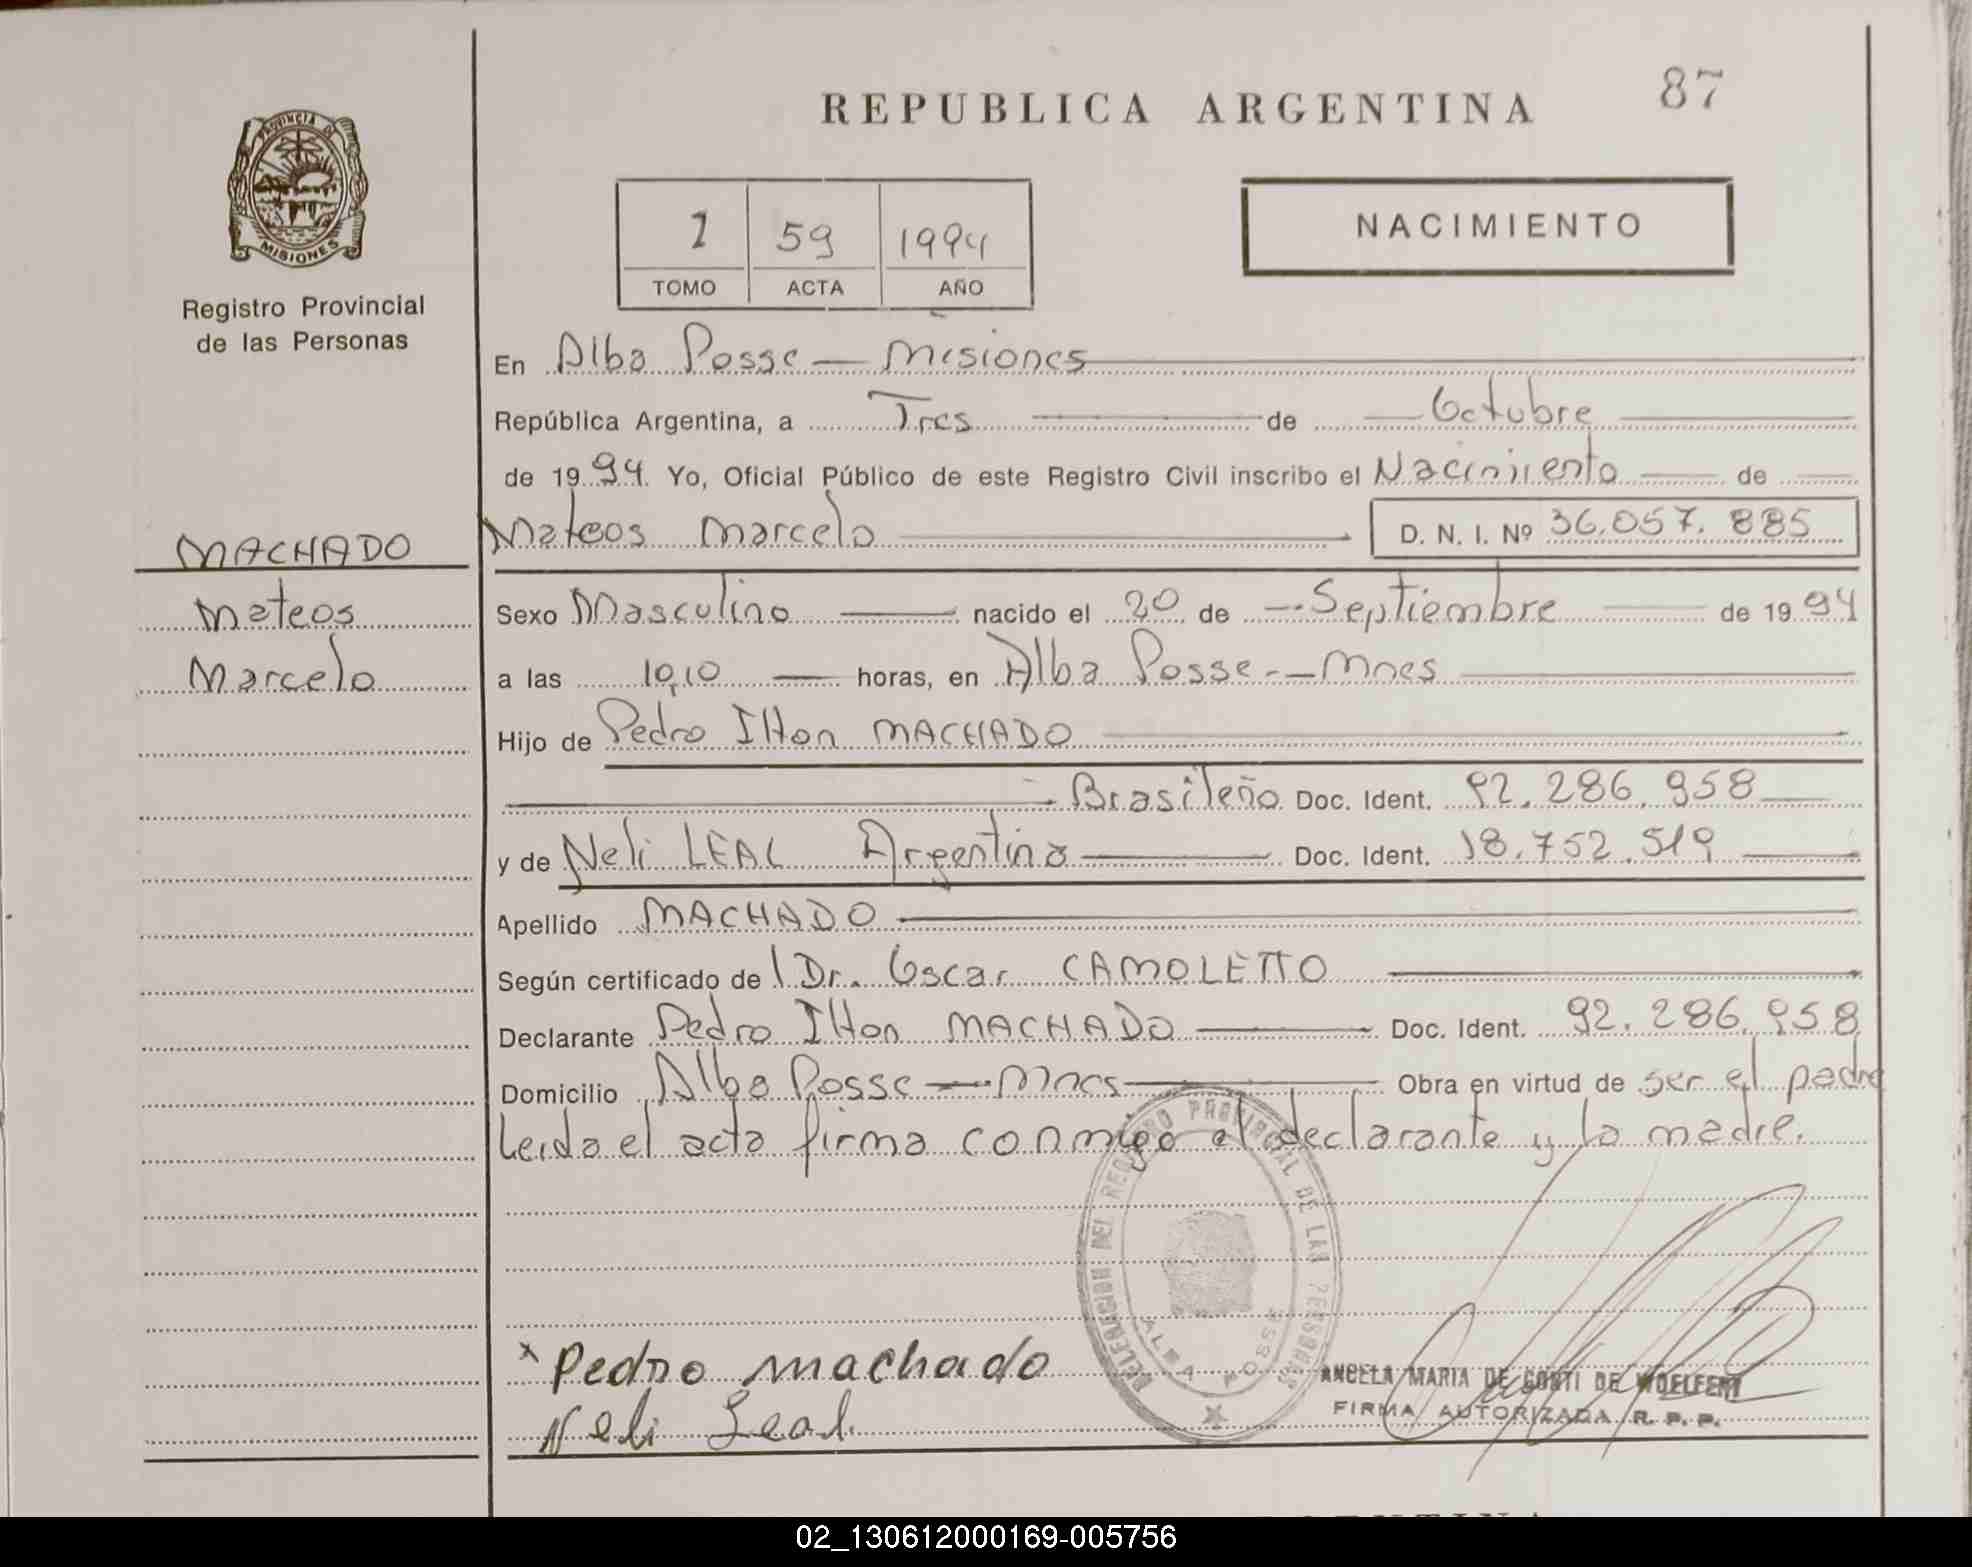 87
REPUBLICA ARGENTINA
PROVINCIA DE
MISIONES
Registro Provincial
de las Personas
1 59 1994
TOMO ACTA AÑO
NACIMIENTO
En Alba Posse — Misiones
República Argentina, a Tres de Octubre
de 1994. Yo, Oficial Público de este Registro Civil inscribo el Nacimiento de
MACHADO
Mateos Marcelo D. N. I. Nº 36.057.885
Mateos
Marcelo
Sexo Masculino nacido el 20 de Septiembre de 1994
a las 10,10 horas, en Alba Posse - Mnes
Hijo de Pedro Ilton MACHADO
Brasileño Doc. Ident. 92.286.958
y de Neli LEAL Argentina Doc. Ident. 18.752.519
Apellido MACHADO
Según certificado de Dr. Oscar CAMOLETTO
Declarante Pedro Ilton MACHADO Doc. Ident. 92.286.958
Domicilio Alba Posse — Mnes Obra en virtud de ser el padre
Leida el acta firma conmigo el declarante y la madre.
DELEGACION DEL REGISTRO PROVINCIAL DE LAS PERSONAS
ALBA POSSE
x Pedro machado
Neli Leal
ANGELA MARIA DE CONTI DE WOELFERT
FIRMA AUTORIZADA R. P. P.
02_130612000169-005756